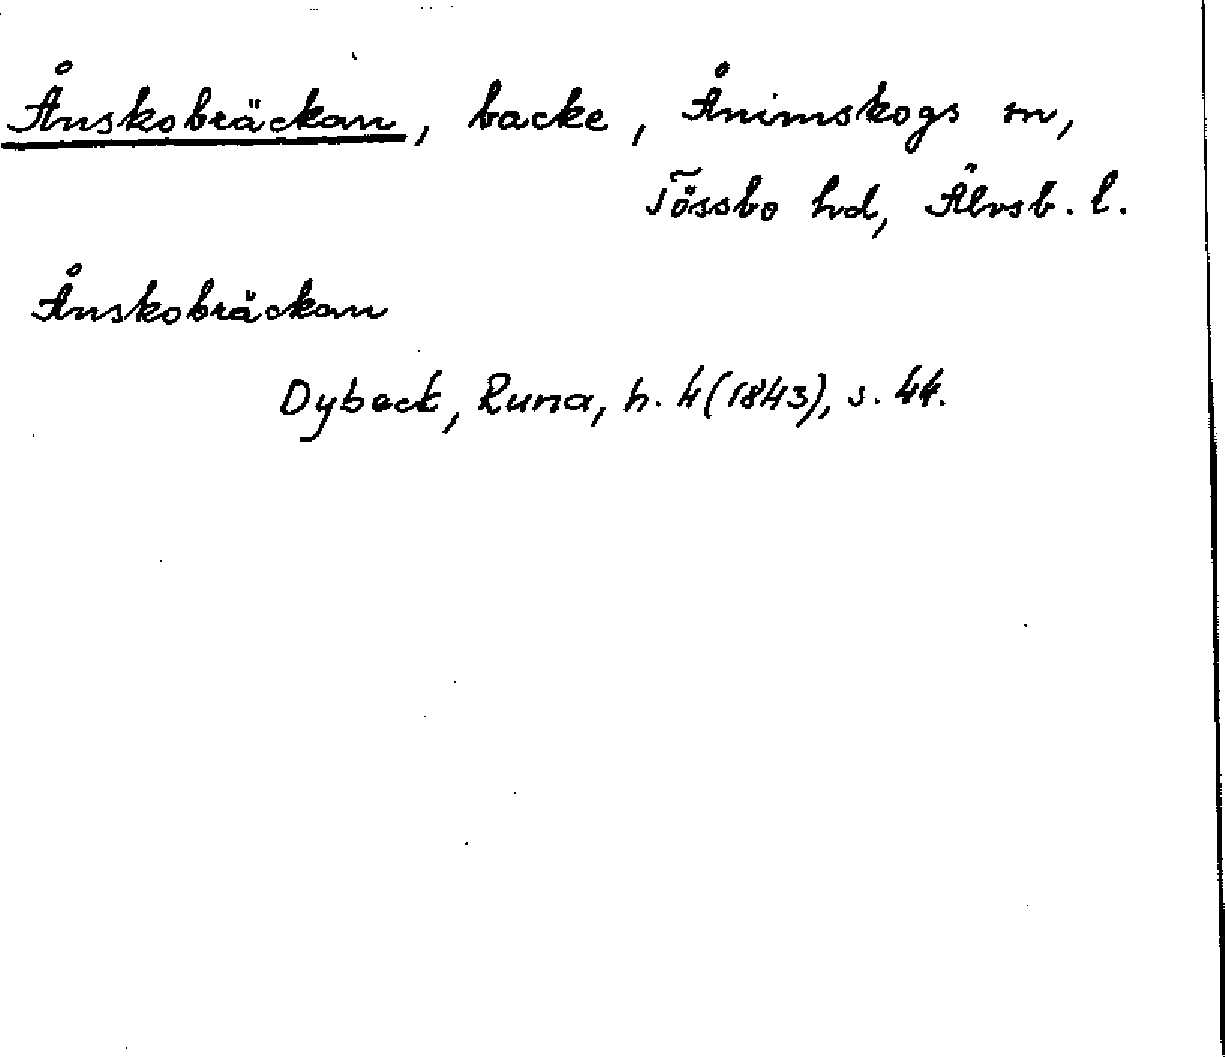 Ånskobräckan, backe, Ånimskogs sn,
Tössbo hd, Älvsb. l.
Ånskobräckan
Dybeck, Runa, h. 4 (1843), s. 44.